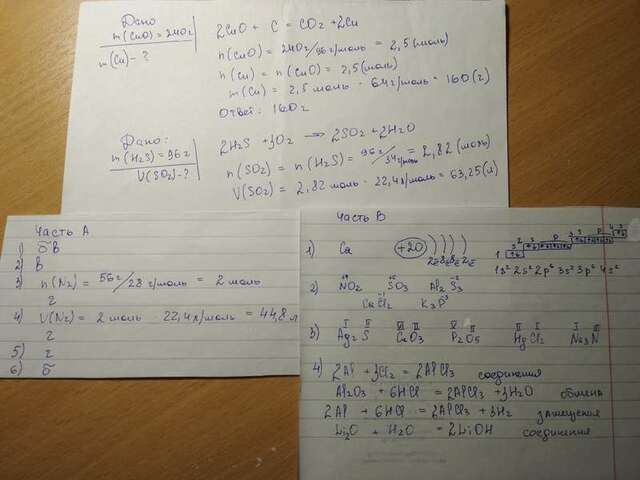 Дано
m(CuO) = 240г
m(Cu) - ?
2CuO + C = CO2 + 2Cu
n(CuO) = 240г/96г/моль = 2,5(моль)
n(Cu) = n(CuO) = 2,5(моль)
m(Cu) = 2,5 моль · 64г/моль = 160(г)
Ответ: 160г
Дано:
m(H2S) = 96г
V(SO2) - ?
2H2S + 3O2 => 2SO2 + 2H2O
n(SO2) = n(H2S) = 96г/34г/моль = 2,82(моль)
V(SO2) = 2,82 моль · 22,4л/моль = 63,25(л)
Часть А
1) б в
2) в
3) n(N2) = 56г/28г/моль = 2 моль
г
4) V(N2) = 2 моль · 22,4л/моль = 44,8 л
г
5) г
6) б
Часть В
1) Ca +20 2ē 8ē 8ē 2ē
1s² 2s² 2p⁶ 3s² 3p⁶ 4s²
2) NO2 SO3 Al2S3
CaCl2 K3P
3) Ag2S P2O5 HgCl2 Na3N
4) 2Al + 3Cl2 = 2AlCl3 соединения
Al2O3 + 6HCl = 2AlCl3 + 3H2O обмена
2Al + 6HCl = 2AlCl3 + 3H2 замещения
Li2O + H2O = 2LiOH соединения